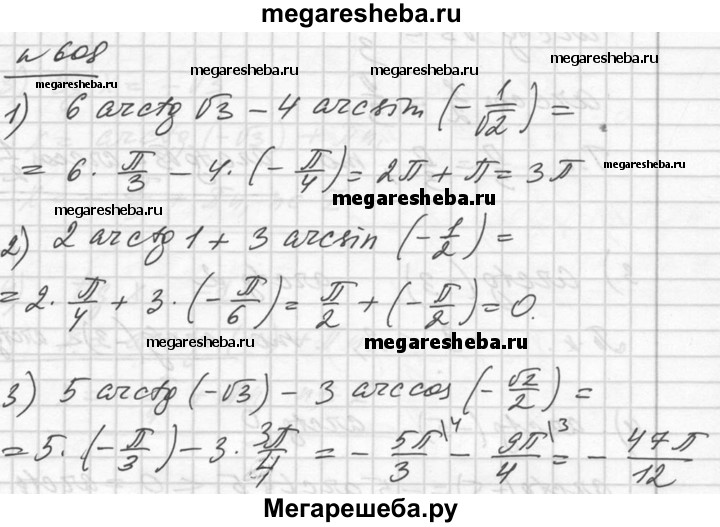 megaresheba.ru
№ 608
megaresheba.ru megaresheba.ru
1) 6 arctg √3 − 4 arcsin (−1/√2) =
= 6 · π/3 − 4 · (−π/4) = 2π + π = 3π
megaresheba.ru
megaresheba.ru
megaresheba.ru
2) 2 arctg 1 + 3 arcsin (−1/2) =
= 2 · π/4 + 3 · (−π/6) = π/2 + (−π/2) = 0.
megaresheba.ru megaresheba.ru
3) 5 arctg (−√3) − 3 arccos (−√2/2) =
= 5 · (−π/3) − 3 · 3π/4 = − 5π/3 \4 − 9π/4 \3 = − 47π/12
Мегарешеба.ру